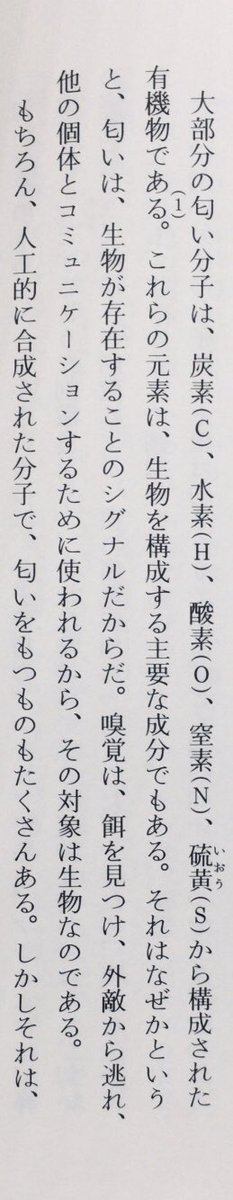 大部分の匂い分子は、炭素(C)、水素(H)、酸素(O)、窒素(N)、硫黄(S)から構成された
いおう
有機物である。これらの元素は、生物を構成する主要な成分でもある。それはなぜかという
(1)
と、匂いは、生物が存在することのシグナルだからだ。嗅覚は、餌を見つけ、外敵から逃れ、
他の個体とコミュニケーションするために使われるから、その対象は生物なのである。
もちろん、人工的に合成された分子で、匂いをもつものもたくさんある。しかしそれは、